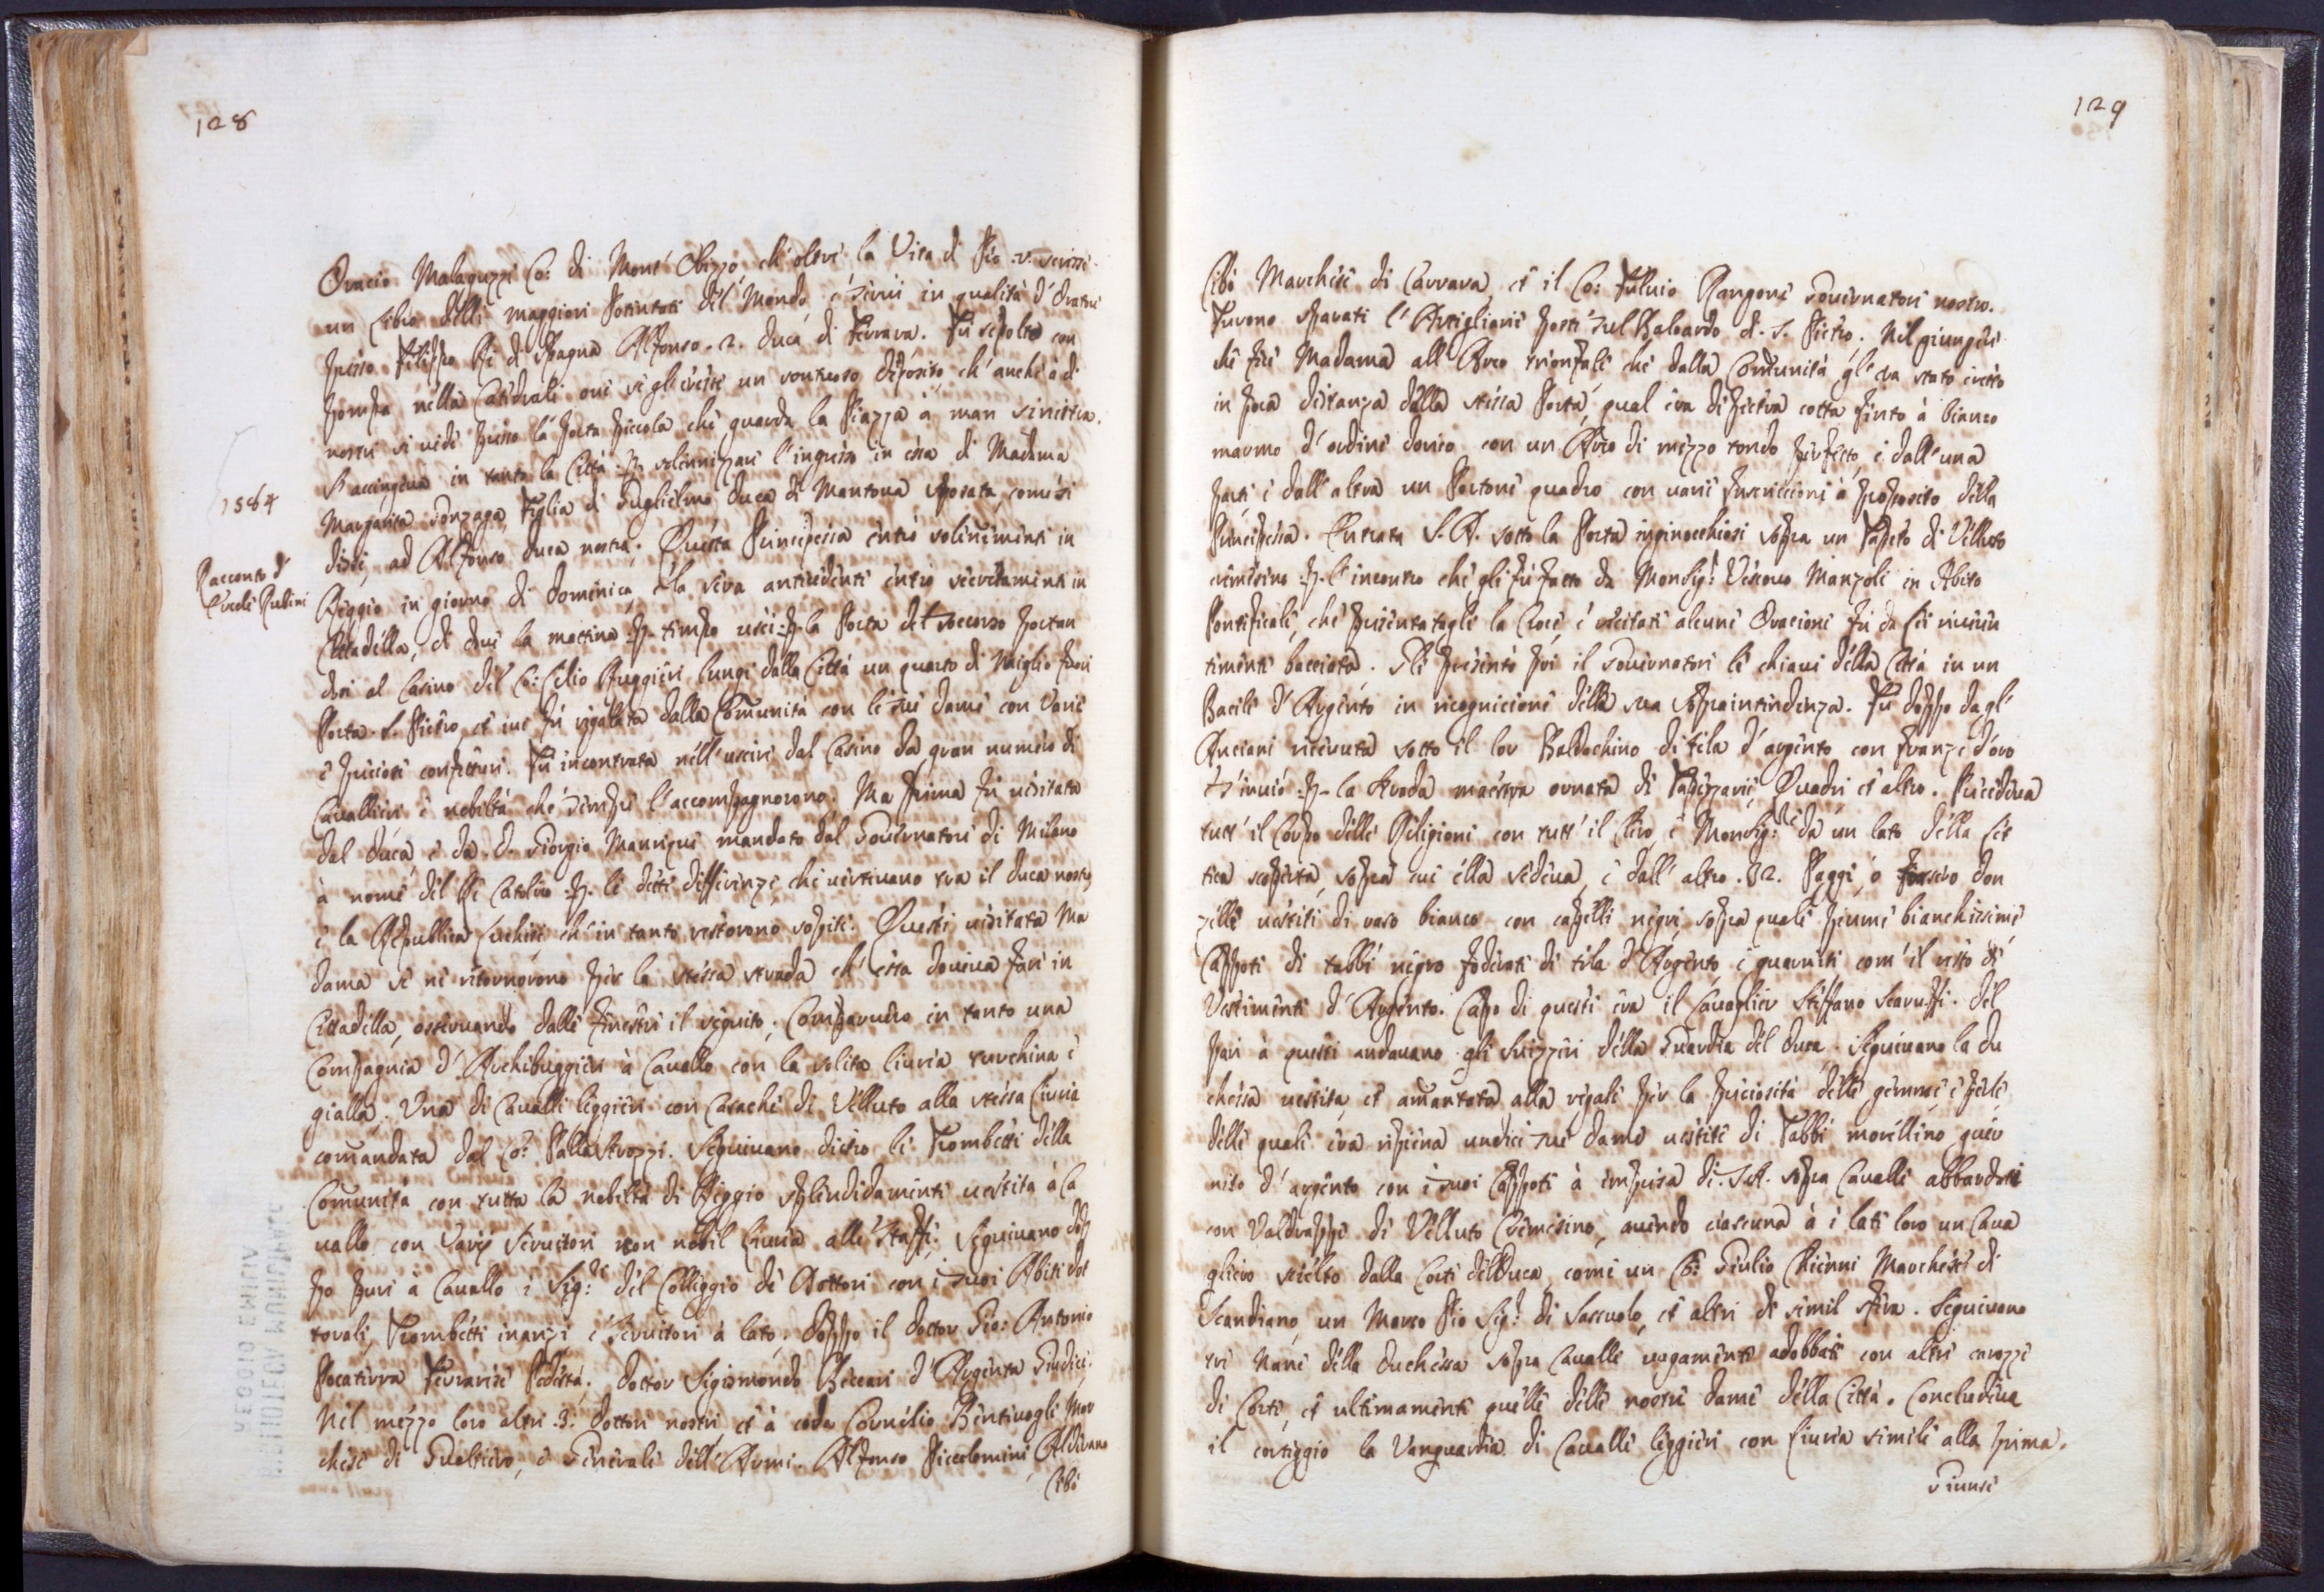 128
Oracio Malaguzzi Co: di Mont' Obizzo, ch' oltre la Vita di Pio .v. scrisse
un Libro delli maggiori Potentati del Mondo, e servì in qualità d' Oratore
presso Filippo Rè di Spagna Alfonso .2. Duca di Ferrara. Fù sepolto con
pompa nella Catedrale ove se gl' eresse un sontuoso deposito, ch' anche à dì
nostri si vede presso la porta piccola che guarda la Piazza à man sinistra.
S' accingeva in tanto la Città p. solennizzare l' ingresso in essa di Madama
1584
Margarita Gonzaga Figlia di Guglielmo Duca di Mantova sposata, come si
disse, ad Alfonso Duca nostro. Questa Principessa entrò solenemente in
Racconto d'
Ercole Rubini
Reggio in giorno di Domenica, e la sera antecedente entrò secretamente in
Cittadella, di dove la mattina p. tempo uscì p. la Porta del soccorso portan
dosi al Casino del Co: Celio Ruggieri lungi dalla Città un quarto di miglio fuori
Porta S. Pietro, et ivi fù regallata dalla Comunità con le sue Dame con varie
e preciose confetture. Fù incontrata nell' uscire dal Casino da gran numero di
Cavallieri e nobiltà che sempre l' accompagnorono. Ma prima fù visitata
dal Duca, e da D. Giorgio Manriques mandato dal Governatore di Milano
à nome del Rè Catolico p. le dette differenze, che vertivano tra il Duca nostro
e la Republica Luchese ch' in tanto restorono sopite. Questi visitata Ma
dama se ne ritornorono per la stessa strada ch' essa doveva fare in
Cittadella, osservando dalle finestre il seguito. Comparvero in tanto una
Compagnia d' Archibuggieri à Cavallo con la solita livrea turchina e
gialla. Una di Cavalli leggieri con Casache di Velluto alla stessa livrea
comandata dal Co: Palla Strozzi. Seguivano dietro li Trombetti della
Comunità con tutta la nobiltà di Reggio splendidamente vestita à Ca
vallo con varij servitori con nobil livrea alle staffe. Seguivano dop
po pure à Cavallo i Sig:ri del Colleggio de Dottori con i suoi Abiti dot
torali, Trombetti inanzi, e servitori à lato. Doppo il Dottor Gio: Antonio
Pocaterra Ferrarese Podestà. Dottor Sigismondo Beccari d' Argenta Giudice.
Nel mezzo loro altri .3. Dottori nostri, et à coda Cornelio Bentivogli Mar
chese di Gualtiero, e Generale dell' Armi. Alfonso Piccolomini, Alderano
Cibò
129
Cibò Marchese di Carrara, et il Co: Fulvio Rangone Governatore nostro.
Furono sparati l' Artiglierie poste sul Baloardo di S. Pietro. Nel giungere
che fece Madama all' Arco trionfale che dalla Comunità gl' era stato eretto
in poca distanza dalla stessa Porta, qual era di pietra cotta finto à bianco
marmo d' ordine dorico con un Arco di mezzo tondo perfetto, e dall' una
parte e dall' altra un Portone quadro con varie Inscriccioni à proposito della
Principessa. Entrata S. A. sotto la Porta inginocchiosi sopra un Tapeto di Velluto
cremesino p. l' incontro che gli fù fatto da Monsig:r Vescovo Manzoli in Abito
Pontificale, che presentatogli la Croce, e recitate alcune Oracioni fù da lei riveren
temente bacciata. Gli presentò poi il Governatore le chiavi della Città in un
Bacile d' Argento in recognicione della sua sopraintendenza. Fù doppo da gl'
Anciani ricevuta sotto il lor Baldochino di tela d' argento con franze d' oro
e s' inviò p. la strada maestra ornata di Tapezzarie, Quadri et altro. Precedeva
tutt' il Corpo delle Religioni con tutt' il Clero, e Monsig:re da un lato della Let
tica scoperta, sopra cui ella sedeva, e dall' altro .32. Paggi, ò fossero don
zelli vestiti di raso bianco con capelli negri, sopra quali piume bianchissime
Cappoti di tabbì negro foderati di tela d' Argento, e guarniti com' il resto de'
Vestimenti d' Argento. Capo di questi era il Cavaglier Steffano Scaruffi. Del
pari à questi andavano gli Svizzeri della Guardia del Duca. Seguivano la Du
chessa vestita, et amantata alla regale per la preciosità delle gemme, e perle
delle quali era ripiena undici sue Dame vestite di Tabbì morellino guer
nito d' argento con i suoi Cappoti à impresa di S. A. sopra Cavalli abbardati
con Valdrappe di Velluto Cremesino, avendo ciascuna à i lati loro un Cava
gliero scielto dalla Corte del Duca, come un Co: Giulio Thienni Marchese di
Scandiano, un Marco Pio Sig:r di Sassuolo, et altri di simil sfera. Seguivano
tre Nane della Duchessa sopra Cavalli vagamente adobbati con altre carozze
di Corte, et ultimamente quelle delle nostre Dame della Città. Concludeva
il corteggio la Vanguardia di Cavalli leggieri con livrea simile alla prima.
Giunse